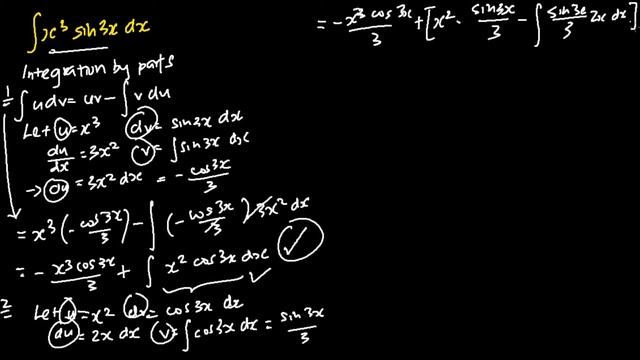 ∫x³ sin3x dx
Integration by parts
1 = ∫u dv = uv − ∫v du
Let u = x³ dv = sin3x dx
du/dx = 3x² v = ∫sin3x dx
→ du = 3x² dx = − cos3x/3
= x³(−cos3x/3) − ∫(−cos3x/3) 3x² dx
= − x³cos3x/3 + ∫ x² cos3x dx ✓
2 = Let u = x² dv = cos3x dx
du = 2x dx v = ∫cos3x dx = sin3x/3
= − x³ cos3x/3 + [x² · sin3x/3 − ∫ sin3x/3 2x dx]